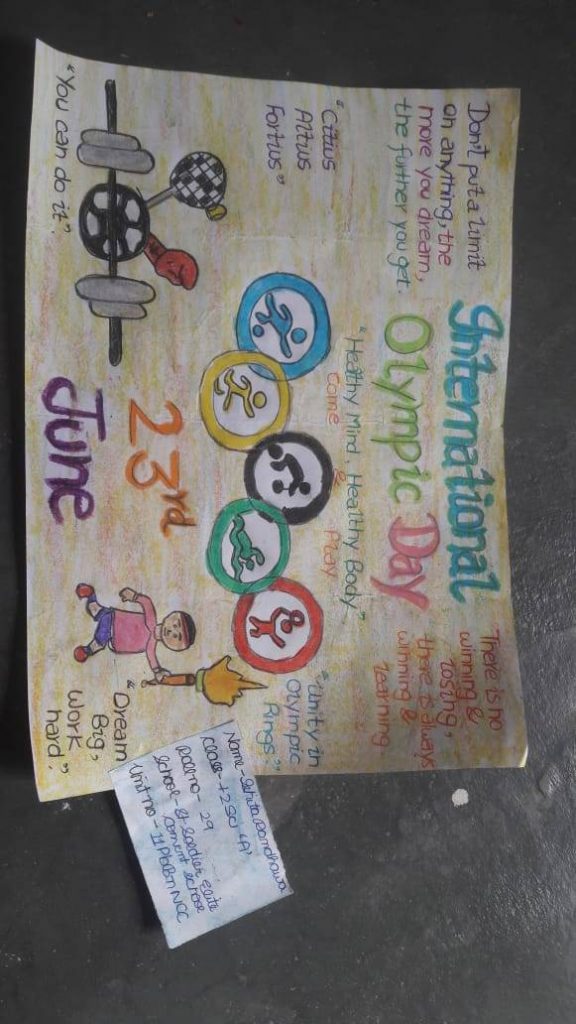 International
Olympic Day
Don't put a limit
on anything, the
more you dream,
the further you get.
There is no
winning &
losing,
there is always
winning &
learning
"Citius
Altius
Fortius"
"Healthy Mind, Healthy Body"
Come & Play
"Unity in
Olympic
Rings."
"You can do it".
23rd
June
"Dream
Big,
Work
hard."
Name- Randhawa
Class- +2 Sci 'A'
Roll no- 29
School- St. Soldier Elite
Convent School
Unit no- 11 Pb Bn NCC